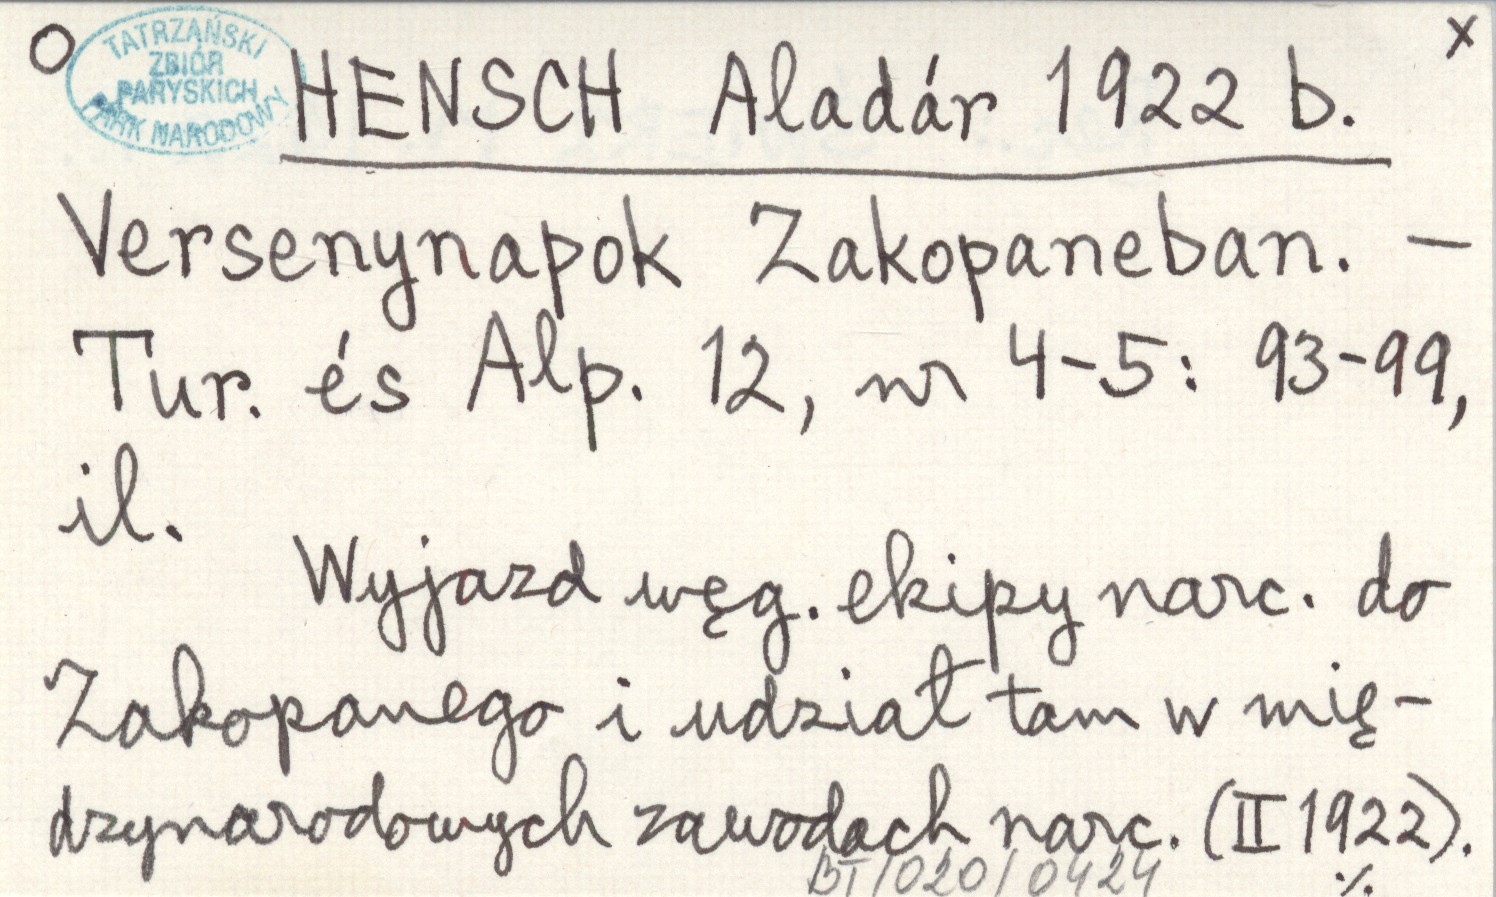 O
x
TATRZAŃSKI
ZBIÓR
PARYSKICH
PARK NARODOWY
HENSCH Aladár 1922 b.
Versenynapok Zakopaneban. —
Tur. és Alp. 12, nr 4-5: 93-99,
il.
Wyjazd węg. ekipy narc. do
Zakopanego i udział tam w mię-
dzynarodowych zawodach narc. (II 1922).
BT/020/0424
./.